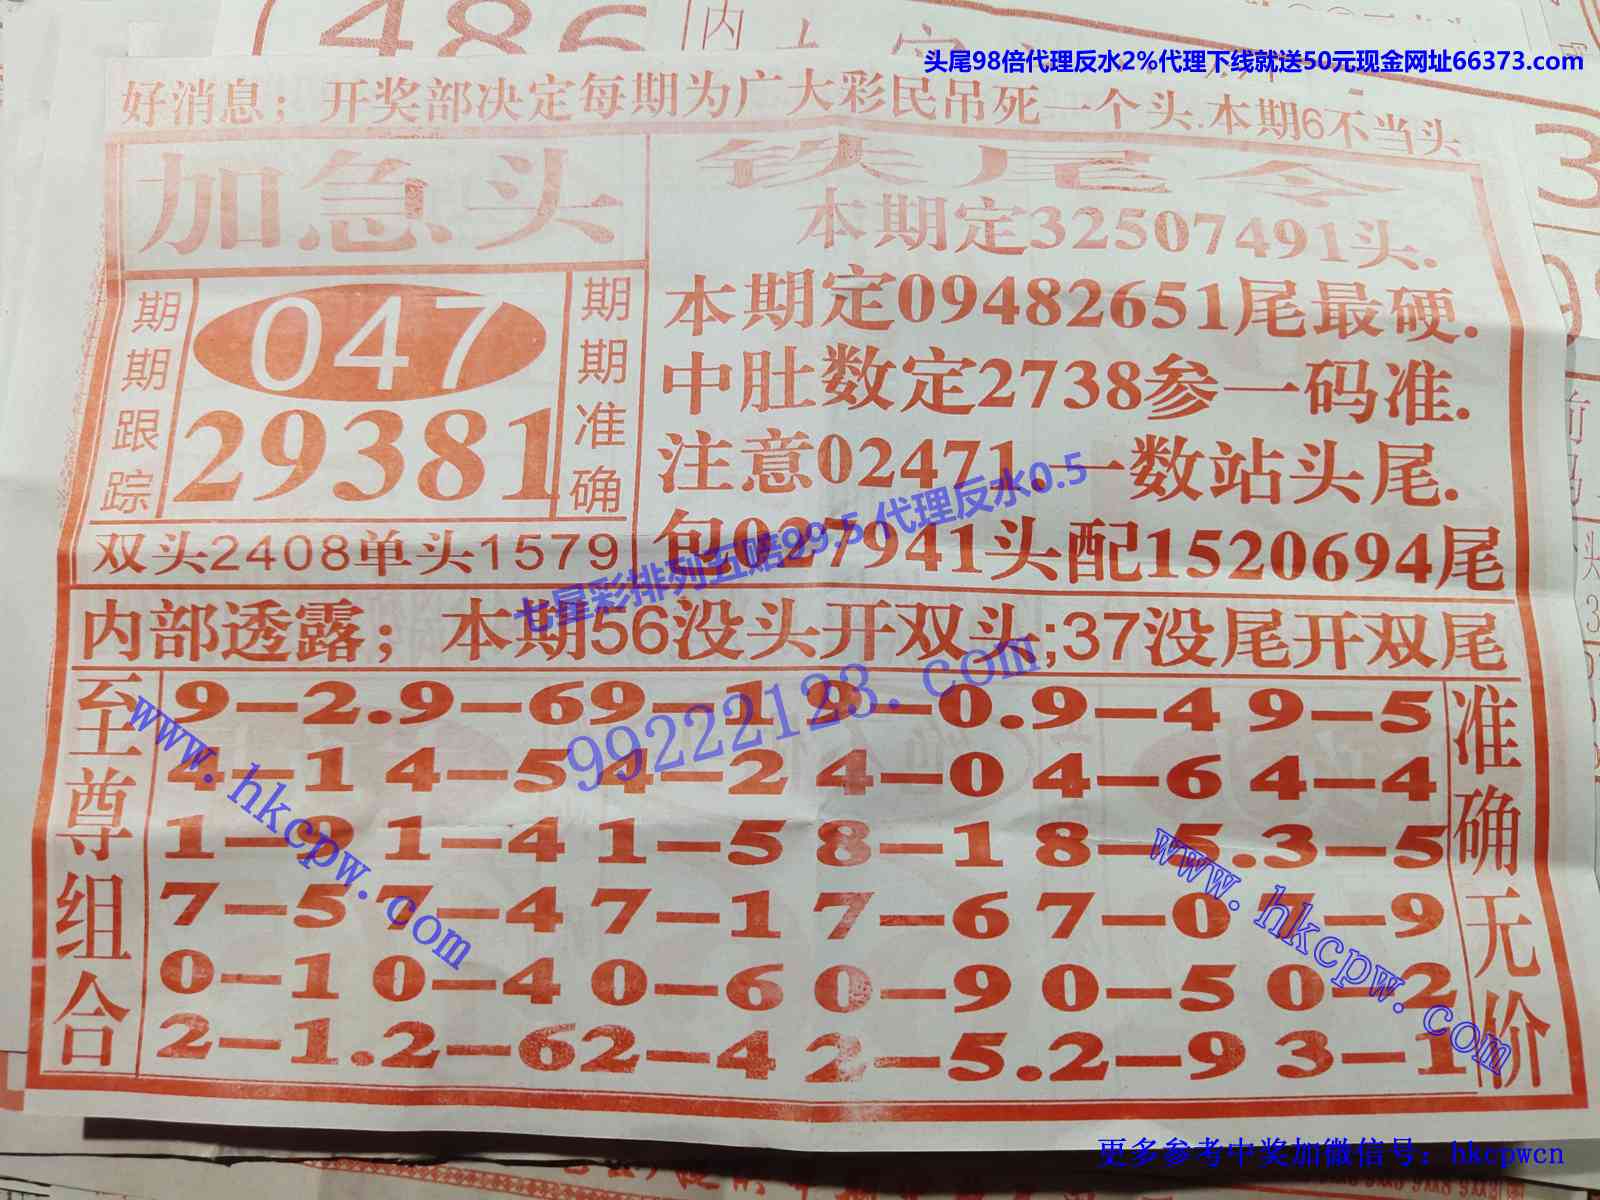 486
内
头尾98倍代理反水2%代理下线就送50元现金网址66373.com
好消息；开奖部决定每期为广大彩民吊死一个头.本期6不当头
加急头
铁尾令
本期定32507491头.
期期跟踪
047
29381
期期准确
本期定09482651尾最硬.
中肚数定2738参一码准.
注意02471.一数站头尾.
双头2408单头1579
包027941头配1520694尾
七星彩排列五赔99.5代理反水0.5
内部透露；本期56没头开双头;37没尾开双尾
99222123.com
至尊组合
9-2.9-69-1 9-0.9-4 9-5
4-1 4-5 4-2 4-0 4-6 4-4
1-9 1-4 1-5 8-1 8-5.3-5
7-5 7-4 7-1 7-6 7-0 7-9
0-1 0-4 0-6 0-9 0-5 0-2
2-1.2-62-4 2-5.2-9 3-1
准确无价
www.hkcpw.com
www.hkcpw.com
更多参考中奖加微信号：hkcpwcn